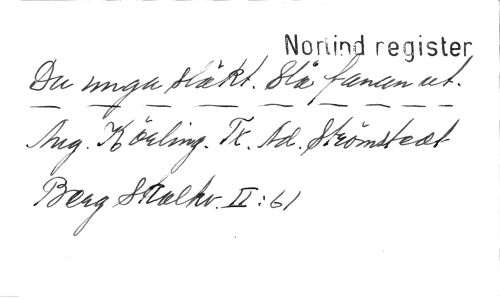 Norlind register
Du unga släkt. Slå fanan ut.
Aug. Körling. Tx. Ad. Strömstedt
Berg Skolkv. II : 61